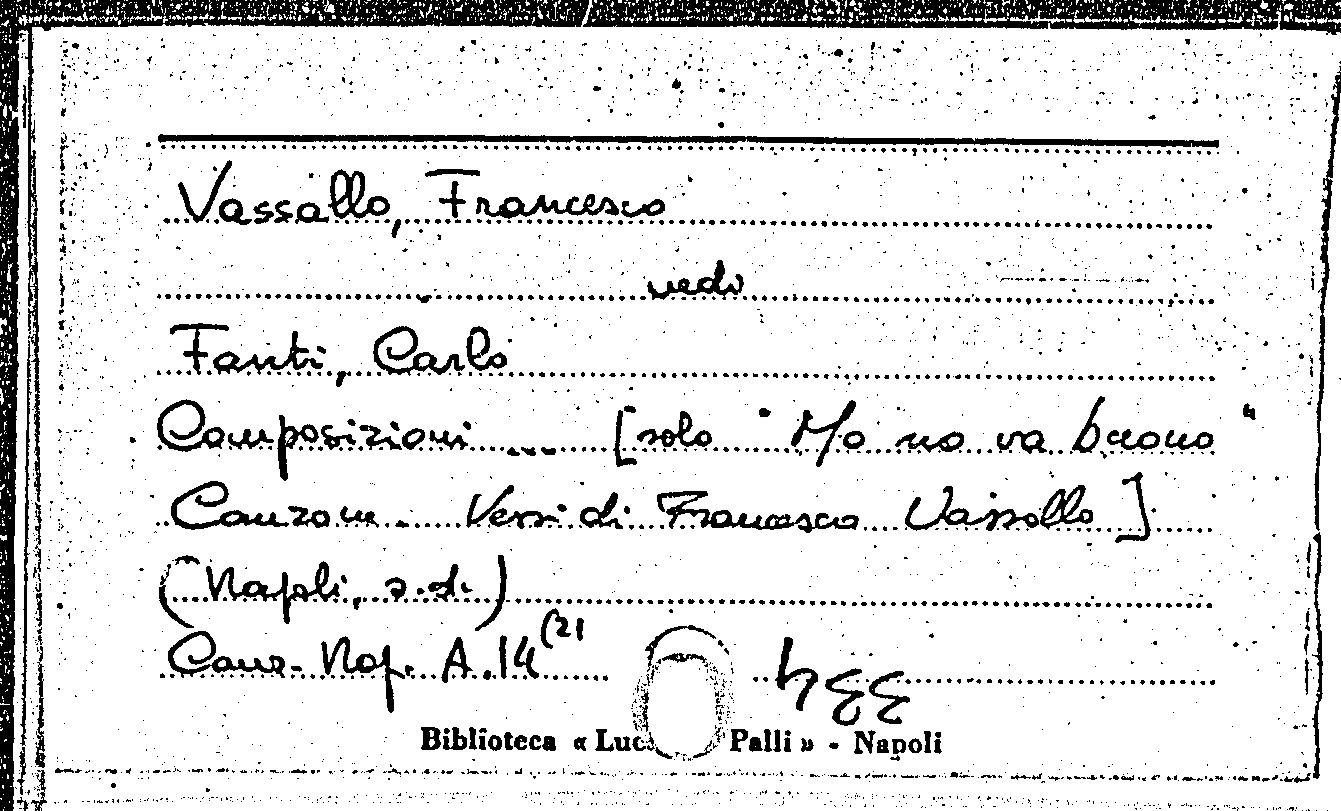 Vassallo, Francesco
vedi
Fanti, Carlo
Composizioni ... [solo "Mo no va buono"
Canzone. Versi di Francesco Vassallo]
(Napoli, s.d.)
Canz. Nap. A.14 (2)
Biblioteca « Luc Palli » - Napoli